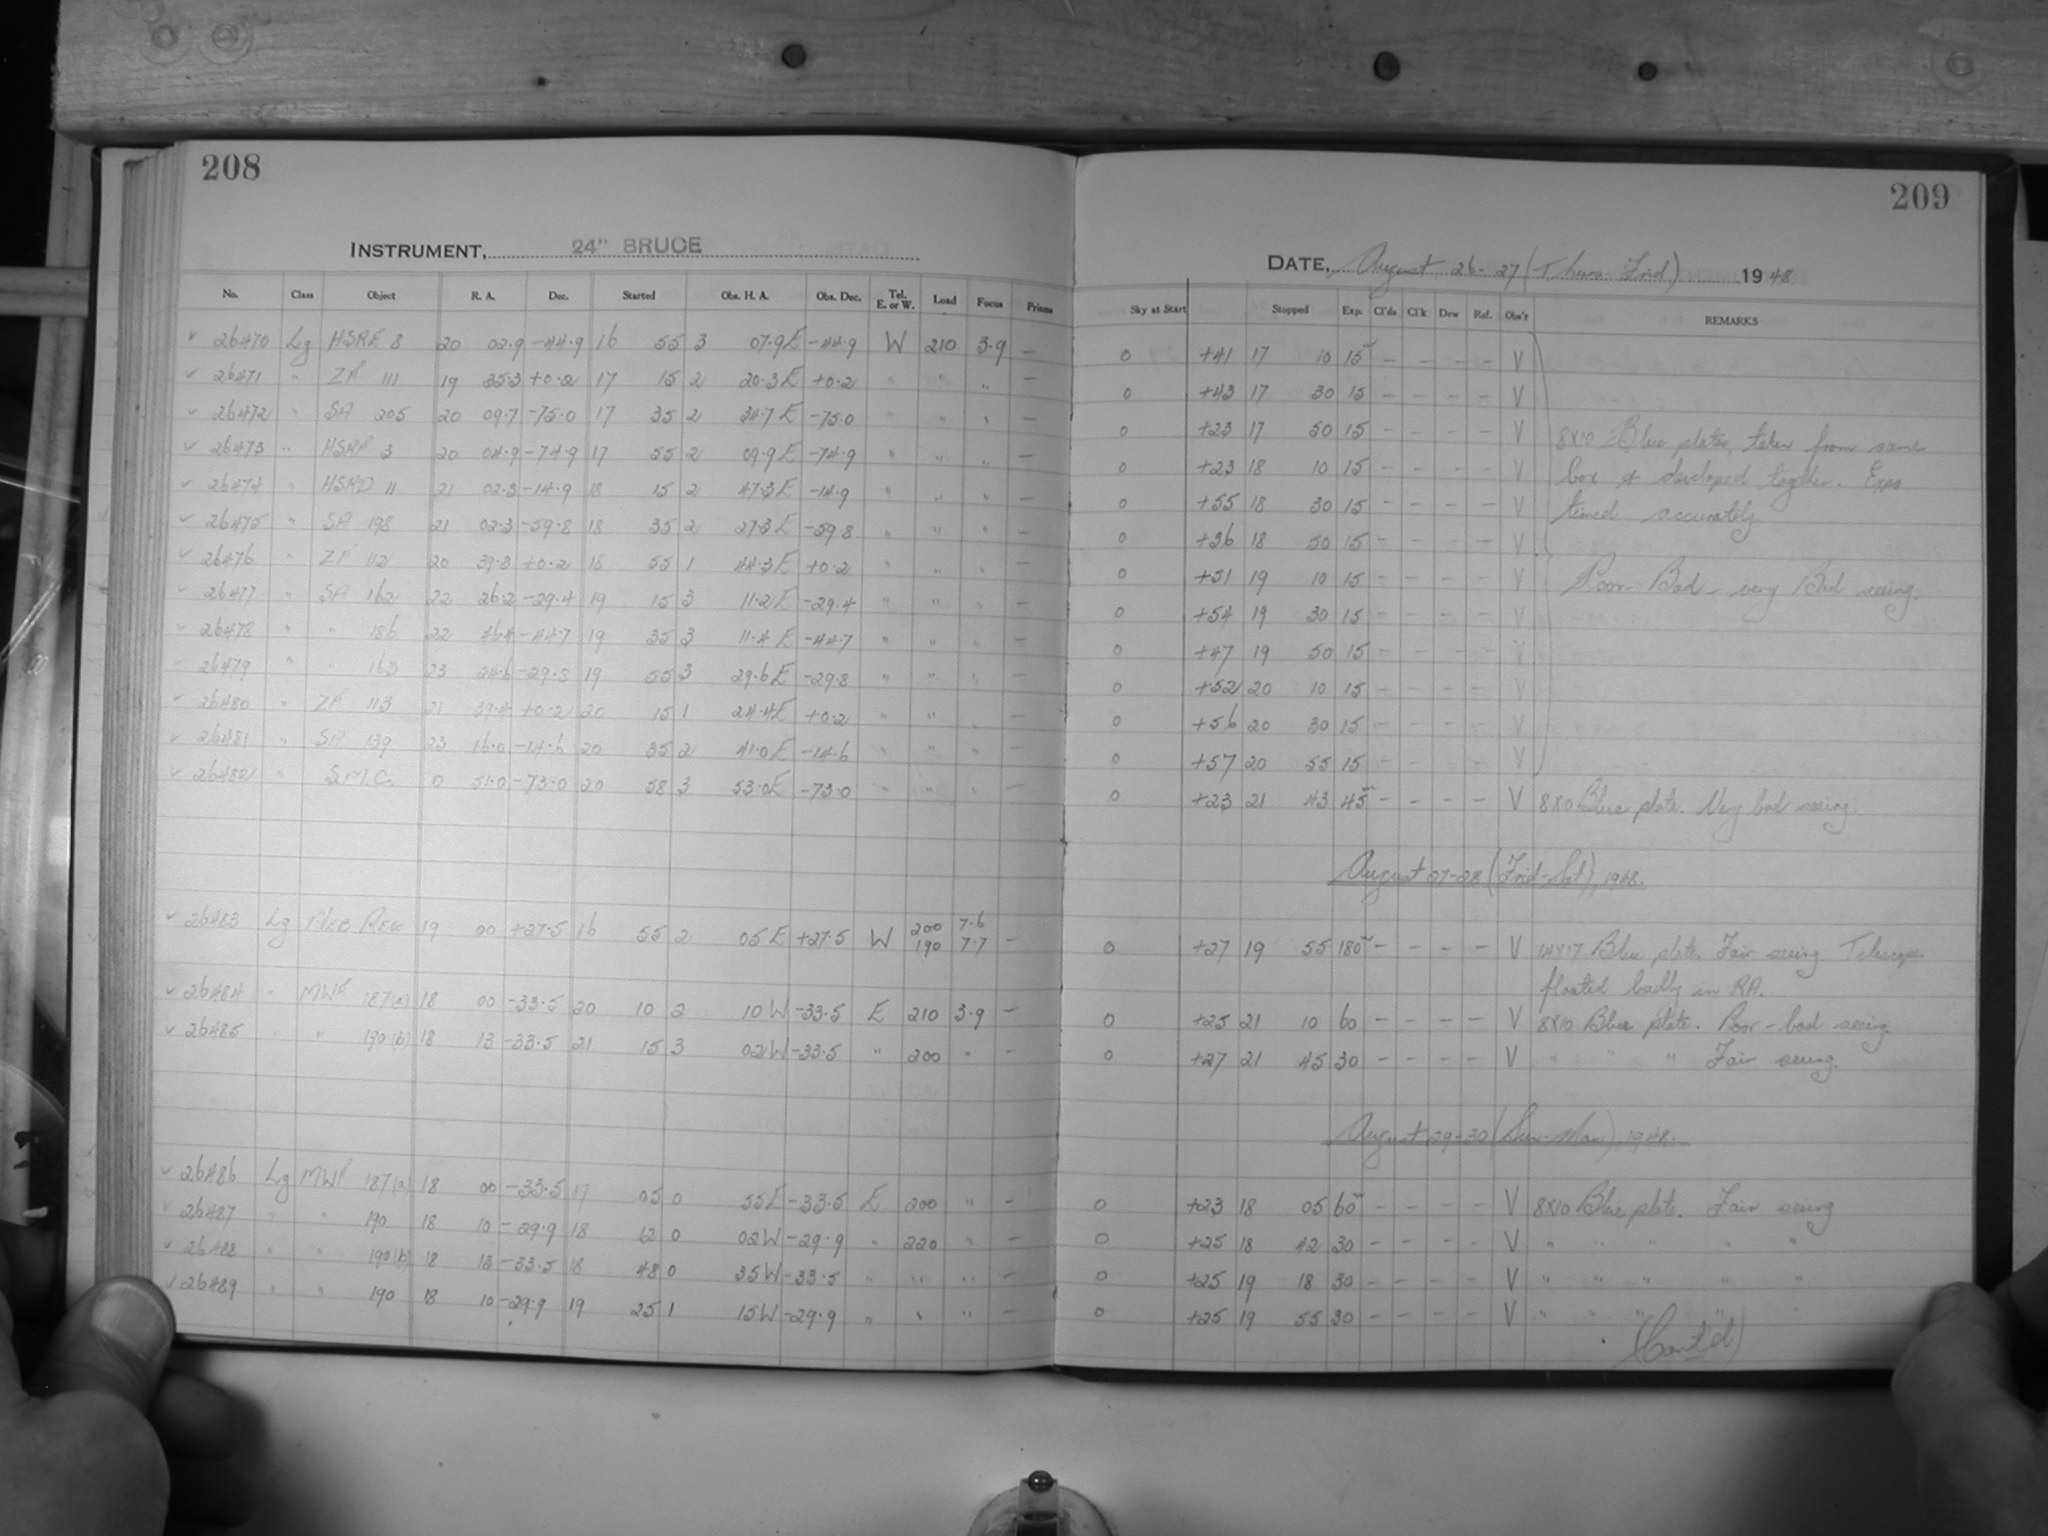 208
209
INSTRUMENT, 24" BRUCE
DATE, August 26-27 (Thurs-Frid) 1948
No. Class Object R. A. Dec. Started Obs. H. A. Obs. Dec. Tel. E. or W. Load Focus Prisms Sky at Start Stopped Exp. Cl'ds Cl'k Dew Ref. Obs'r REMARKS
26470 Lg HSRE 8 20 02.9 -44.9 16 55 3 07.9E -44.9 W 210 3.9 — 0 +41 17 10 15 - - - - V
26471 " ZP 111 19 35.3 +0.2 17 15 2 20.3E +0.2 " " " — 0 +43 17 30 15 - - - - V
26472 " SA 205 20 09.7 -75.0 17 35 2 34.7E -75.0 " " " — 0 +23 17 50 15 - - - - V 8x10 Blue plates, taken from same
26473 " HSRF 3 20 04.9 -74.9 17 55 2 09.9E -74.9 " " " — 0 +23 18 10 15 - - - - V box & developed togther. Exps
26474 " HSRD 11 21 02.3 -14.9 18 15 2 47.3E -14.9 " " " — 0 +55 18 30 15 - - - - V timed accurately
26475 " SA 198 21 02.3 -59.8 18 35 2 27.3E -59.8 " " " — 0 +36 18 50 15 - - - - V
26476 " ZP 112 20 39.3 +0.2 18 55 1 44.3E +0.2 " " " — 0 +51 19 10 15 - - - - V Poor-Bad-very Bad seeing.
26477 " SA 162 22 26.2 -29.4 19 15 3 11.2E -29.4 " " " — 0 +54 19 30 15 - - - - V
26478 " " 186 22 46.4 -44.7 19 35 3 11.4E -44.7 " " " — 0 +47 19 50 15 - - - - V
26479 " " 163 23 24.6 -29.8 19 55 3 29.6E -29.8 " " " — 0 +52 20 10 15 - - - - V
26480 " ZP 113 21 39.4 +0.2 20 15 1 24.4E +0.2 " " " — 0 +56 20 30 15 - - - - V
26481 " SA 139 23 16.0 -14.6 20 35 2 41.0E -14.6 " " " — 0 +57 20 55 15 - - - - V
26482 " S.M.C. 0 51.0 -73.0 20 58 3 53.0E -73.0 " " " — 0 +23 21 43 45 - - - - V 8x10 Blue plate. Very bad seeing.
August 27-28 (Frid-Sat), 1948.
26483 Lg 19 00 +27.5 16 55 2 05E +27.5 W 200 7.6 190 7.7 — 0 +27 19 55 180 - - - - V 14x17 Blue plate. Fair seeing Telescope
floated badly in RA.
26484 " MWF 187(a) 18 00 -33.5 20 10 2 10W -33.5 E 210 3.9 — 0 +25 21 10 60 - - - - V 8x10 Blue plate. Poor-bad seeing
26485 " " 190(b) 18 13 -33.5 21 15 3 02W -33.5 " 200 " — 0 +27 21 45 30 - - - - V " " " Fair seeing.
August 29-30 (Sun-Mon), 1948.
26486 Lg MWF 187(a) 18 00 -33.5 17 05 0 55E -33.5 E 200 " — 0 +23 18 05 60 - - - - V 8x10 Blue plate. Fair seeing
26487 " " 190 18 10 -29.9 18 12 0 02W -29.9 " 220 " — 0 +25 18 42 30 - - - - V " " " " "
26488 " " 190(b) 18 13 -33.5 18 48 0 35W -33.5 " " " — 0 +25 19 18 30 - - - - V " " " " "
26489 " " 190 18 10 -29.9 19 25 1 15W -29.9 " " " — 0 +25 19 55 30 - - - - V " " " "
(Cont'd)